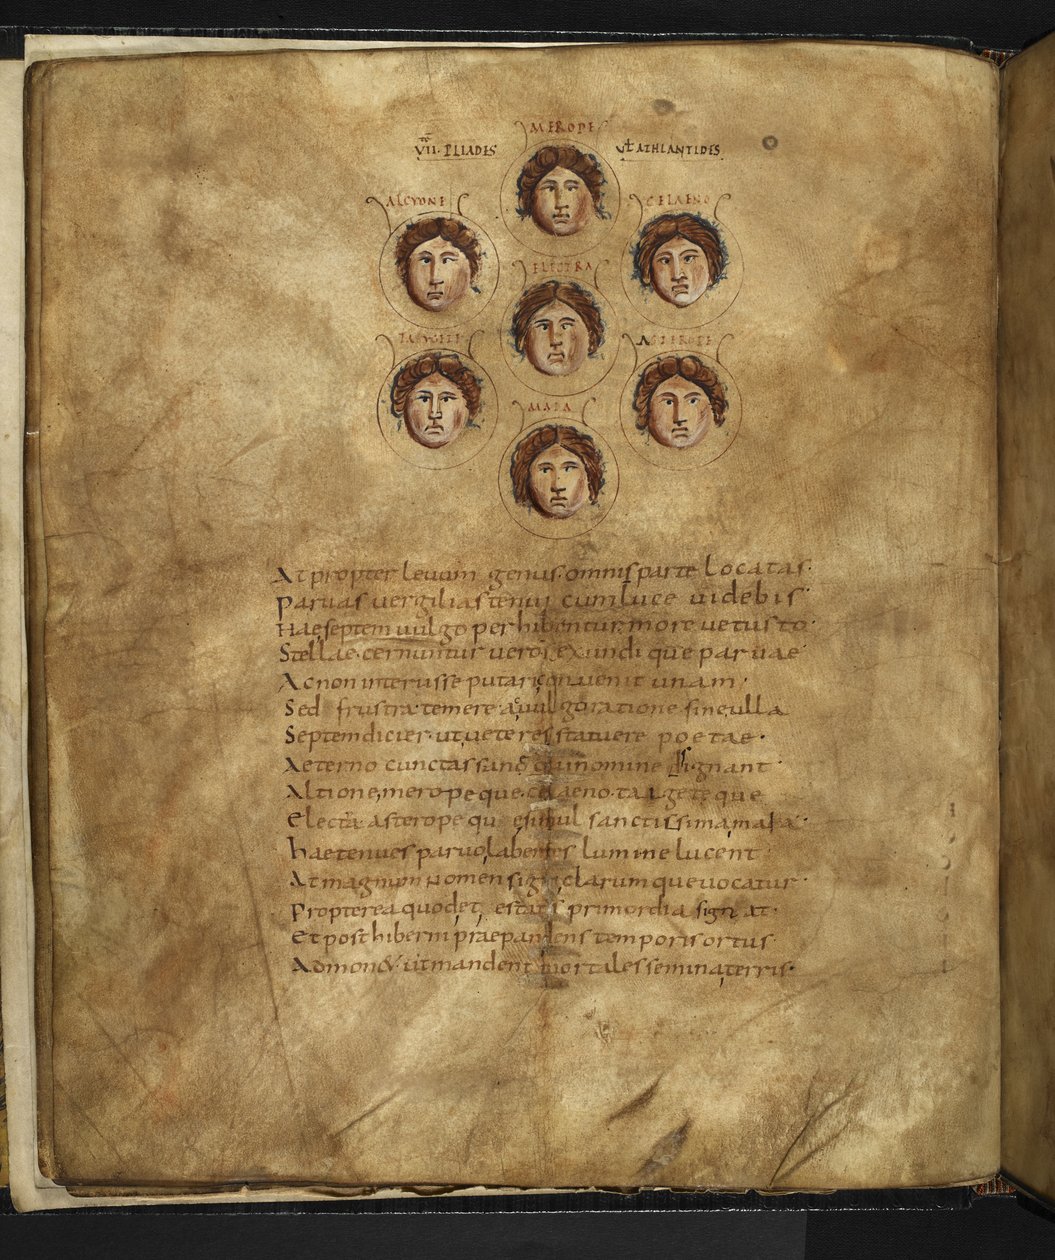 MEROPE
VII · PLIADES
Vt ATHLANTIDES
ALCYONE
CELAENO
ELECTRA
ASTEROPE
MAIA
At propter leuum genus · omnis parte locatas ·
Paruas uergilias tenui cum luce uidebis ·
Hae septem uulgo perhibentur more uetusto ·
Stellae · cernuntur uero sex undique paruae ·
Ac non interiisse putari conuenit unam ·
Sed frustra · temere · a uulgo ratione sine ulla
Septem dicier · ut ueteres statuere poetae ·
Aeterno cunctas sane qui nomine signant ·
Altione, meropeque · celaeno · taigeteque
Electra asteropeque simul sanctissima maia ·
hae tenues paruo labentes lumine lucent ·
At magnum nomen signi clarumque uocatur ·
Propterea quod et estatis primordia signat ·
Et post hiberni praepandens temporis ortus ·
Admon& ut mandent mortales semina terris ·